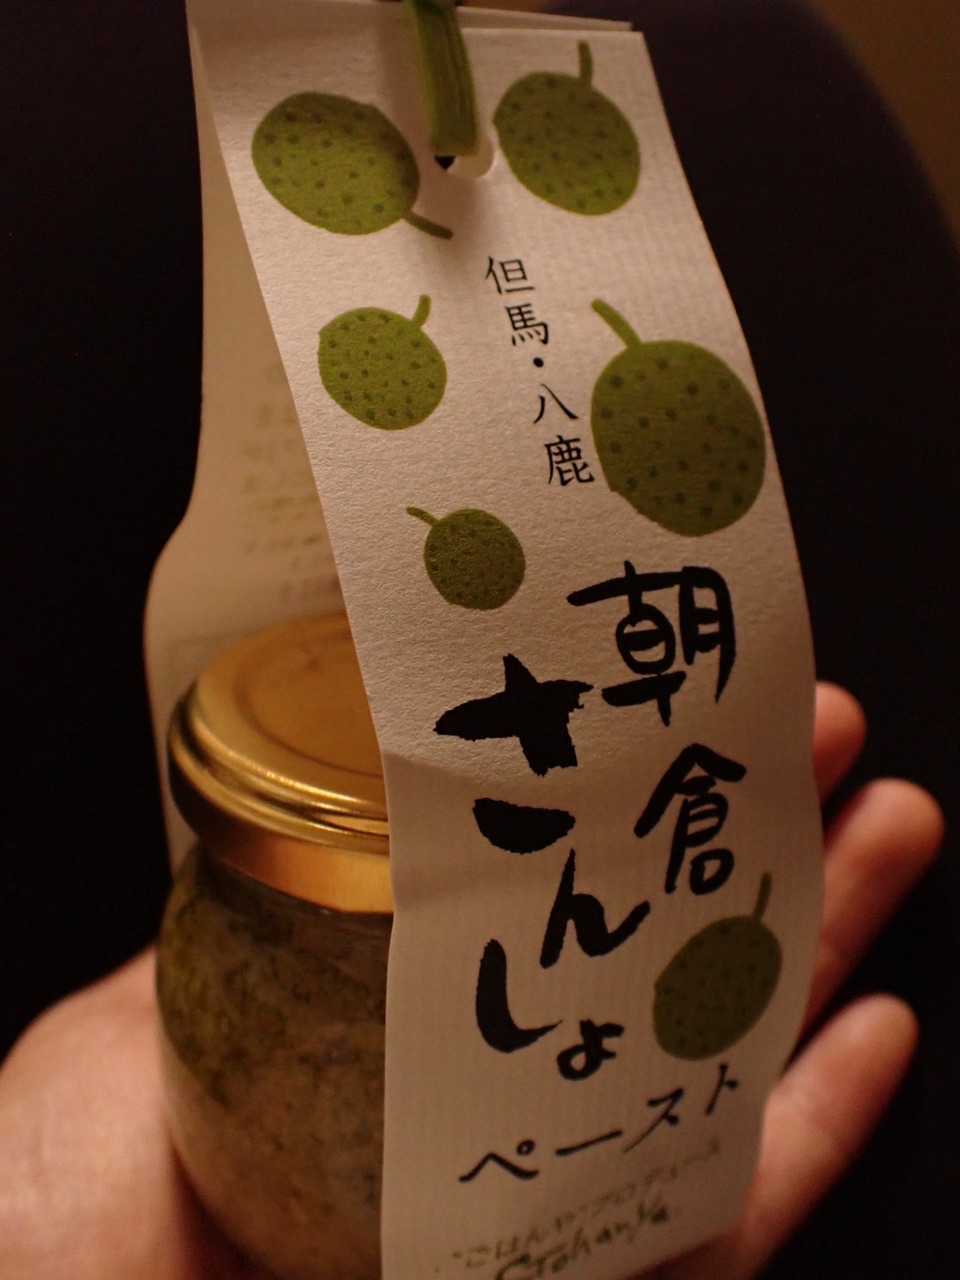 但馬・八鹿
朝倉
さんしょ
ペースト